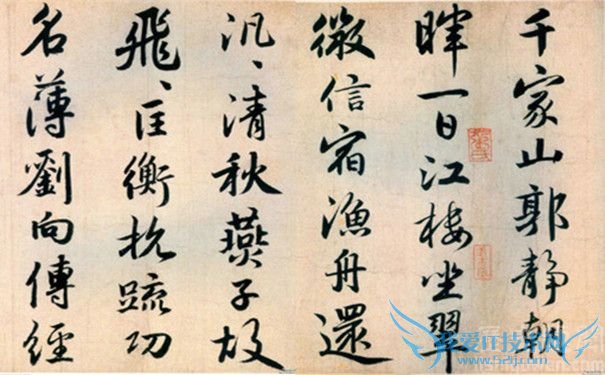 千家山郭靜朝
暉一日江樓坐翠
微信宿漁舟還
汎々清秋燕子故
飛々匡衡抗疏功
名薄劉向傳經
我爱IT技术网